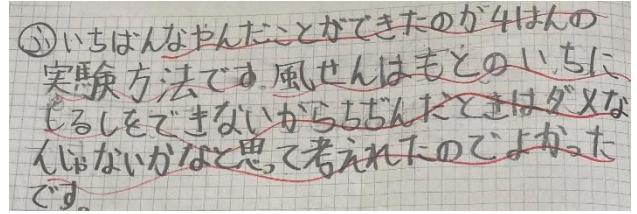 ㋫いちばんなやんだことができたのが4はんの
実験方法です。風せんはもとのいちに
しるしをできないからちぢんだときはダメな
んじゃないかなと思って考えれたのでよかった
です。